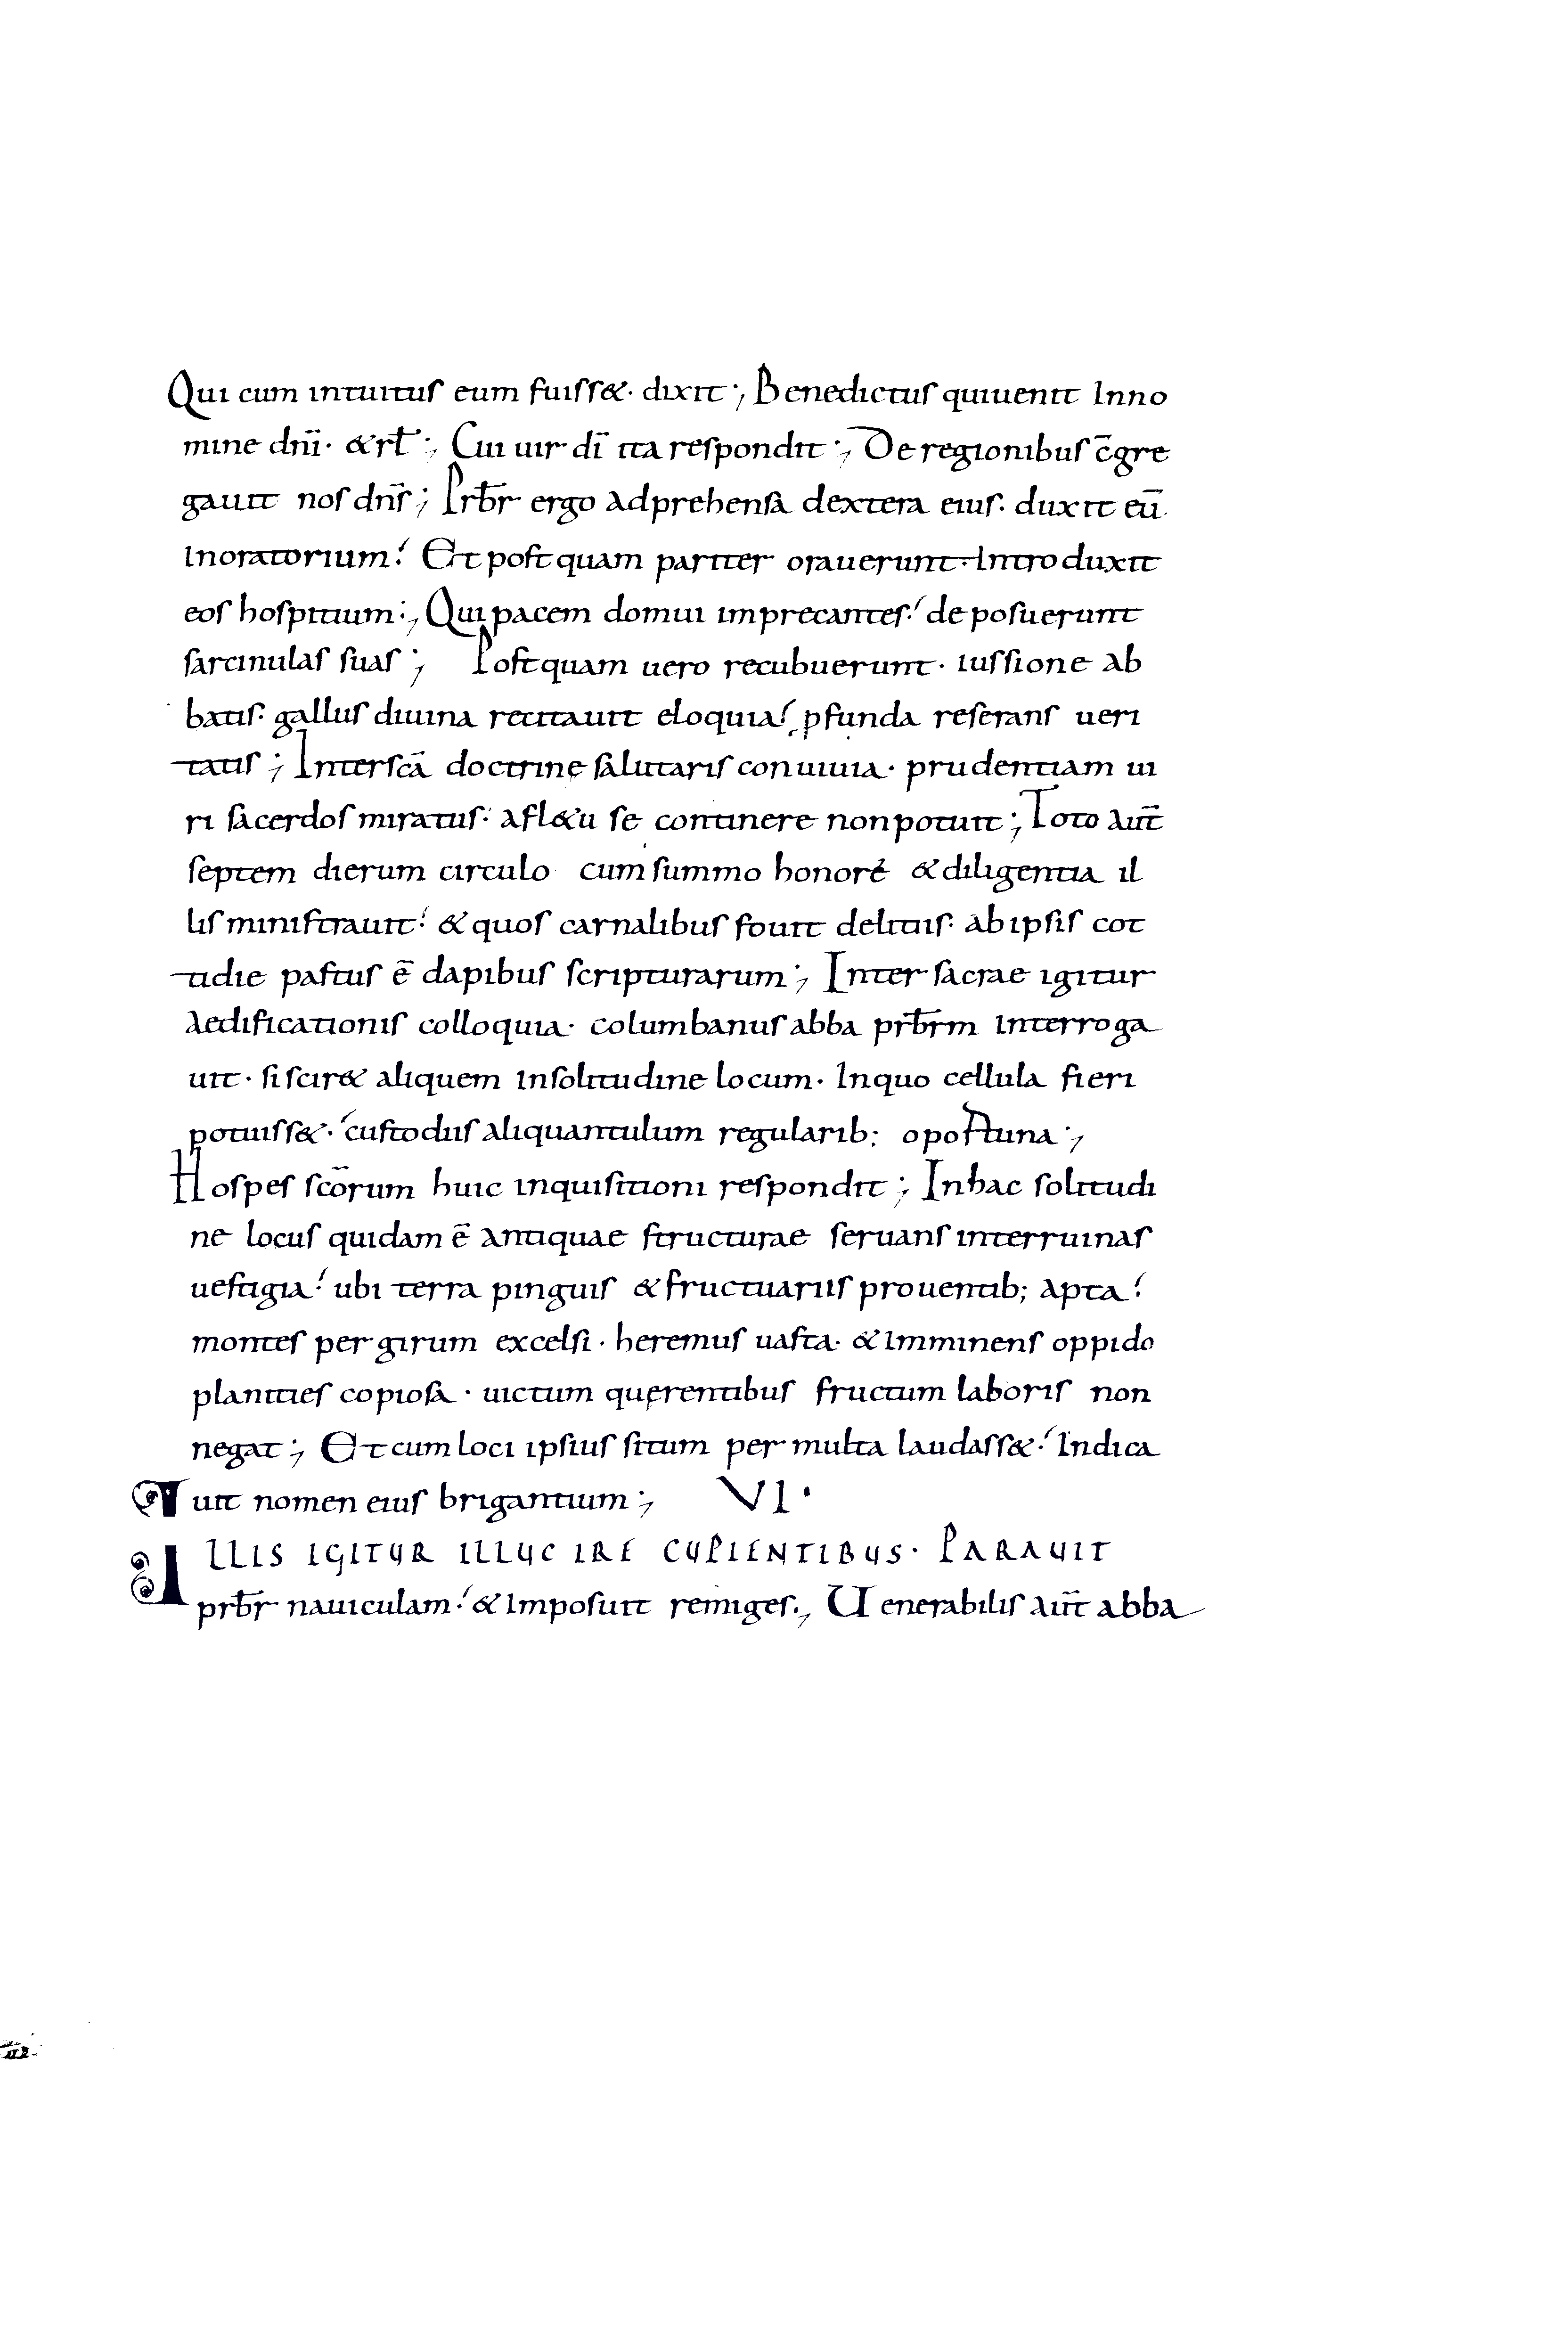 Qui cum intuitus eum fuiss&· dixit; Benedictus quiuenit Inno
mine dn̄i· &rł; Cui uir dī ita respondit; De regionibus c̄gre
gauit nos dn̄s; Prƀr ergo adprehensa dextera eius· duxit eū
inoratorium! Et postquam pariter orauerunt· Introduxit
eos hospitium; Qui pacem domui imprecantes! deposuerunt
sarcinulas suas; Postquam uero recubuerunt· iussione ab
batis· gallus diuina recitauit eloquia! ꝓfunda reserans ueri
tatis; Interscā doctrinę salutaris conuiuia· prudentiam ui
ri sacerdos miratus· afl&u se continere nonpotuit; Toto aūt
septem dierum circulo cum summo honore &diligentia il
lis ministrauit! & quos carnalibus fouit delitiis· ab ipsis cot
tidie pastus ē dapibus scripturarum; Inter sacrae igitur
aedificationis colloquia· columbanus abba prƀrm interroga
uit· si scir& aliquem insolitudine locum· Inquo cellula fieri
potuiss&· custodiis aliquantulum regularib; oportuna;
Hospes scōrum huic inquisitioni respondit; Inhac solitudi
ne locus quidam ē antiquae structurae seruans interruinas
uestigia! ubi terra pinguis &fructuariis prouentib; apta!
montes per girum excelsi· heremus uasta· &imminens oppido
planities copiosa· uictum quęrentibus fructum laboris non
negat; Et cum loci ipsius situm per multa laudass&! Indica
uit nomen eius brigantium; VI·
ILLIS IGITUR ILLUC IRE CUPIENTIBUS· PARAUIT
prƀr nauiculam! &imposuit remiges; Uenerabilis aūt abba